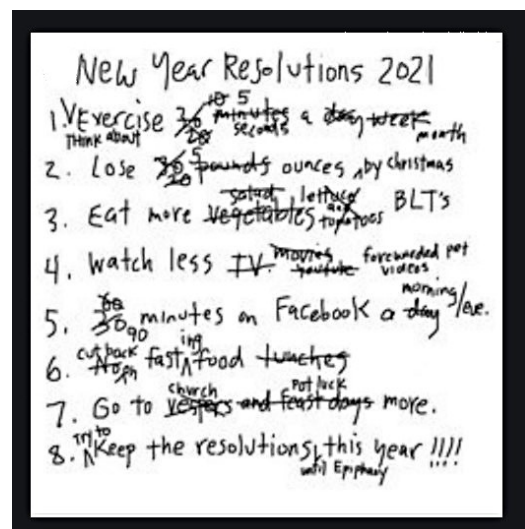 New Year Resolutions 2021
1. V Exercise 30 20 10 5 minutes seconds a day week month
Think about
2. Lose 30 20 5 pounds ounces ^ by christmas
3. Eat more vegetables salad lettuce and tomatoes BLT's
4. Watch less T.V. movies youtube forewarded pet videos
5. 30 60 90 minutes on Facebook a day morning/eve.
6. No cut back on fast^ing food lunches
7. Go to vespers church and feast days potluck more.
8. ^Try to Keep the resolutions ^ this year !!!!
until Epiphany